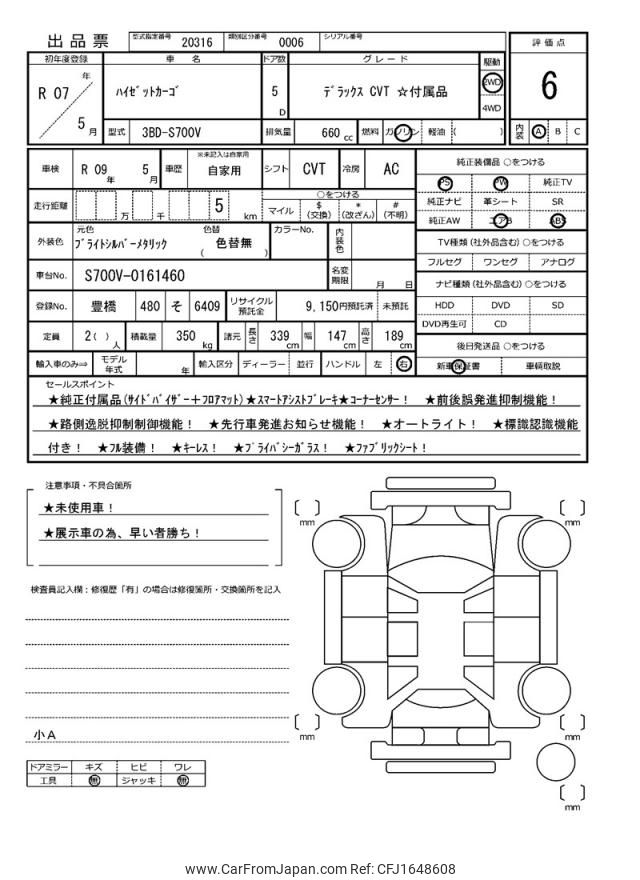 出品票 型式指定番号 20316 類別区分番号 0006 シリアル番号
評価点
6
内装 A B C
初年度登録 車名 ドア数 グレード 駆動
R 07 年 5 月 ハイゼットカーゴ 5 D デラックス CVT ☆付属品 2WD 4WD
型式 3BD-S700V 排気量 660 cc 燃料 ガソリン 軽油 ( )
車検 R 09 年 5 月 車歴 ※未記入は自家用 自家用 シフト CVT 冷房 AC
走行距離 万 千 5 km ○をつける マイル $(交換) *(改ざん) #(不明)
外装色 元色 ブライトシルバーメタリック 色替 ( 色替無 ) カラーNo. 内装色
車台No. S700V-0161460 名変期限 月 日
登録No. 豊橋 480 そ 6409 リサイクル預託金 9,150円預託済 未預託
定員 2( ) 人 積載量 350 kg 諸元 長さ 339 cm 幅 147 cm 高さ 189 cm
輸入車のみ⇒ モデル年式 年 輸入区分 ディーラー 並行 ハンドル 左 右
純正装備品 ○をつける
PS PW 純正TV
純正ナビ 革シート SR
純正AW エアB ABS
TV種類 (社外品含む) ○をつける
フルセグ ワンセグ アナログ
ナビ種類 (社外品含む) ○をつける
HDD DVD SD
DVD再生可 CD
後日発送品 ○をつける
新車保証書 車輌取説
セールスポイント
★純正付属品(サイドバイザー+フロアマット)★スマートアシストブレーキ★コーナーセンサー! ★前後誤発進抑制機能!
★路側逸脱抑制制御機能! ★先行車発進お知らせ機能! ★オートライト! ★標識認識機能
付き! ★フル装備! ★キーレス! ★プライバシーガラス! ★ファブリックシート!
注意事項・不具合箇所
★未使用車!
★展示車の為、早い者勝ち!
検査員記入欄：修復歴「有」の場合は修復箇所・交換箇所を記入
小A
ドアミラー キズ ヒビ ワレ
工具 無 ジャッキ 無
mm
mm
mm
mm
mm
www.CarFromJapan.com Ref: CFJ1648608